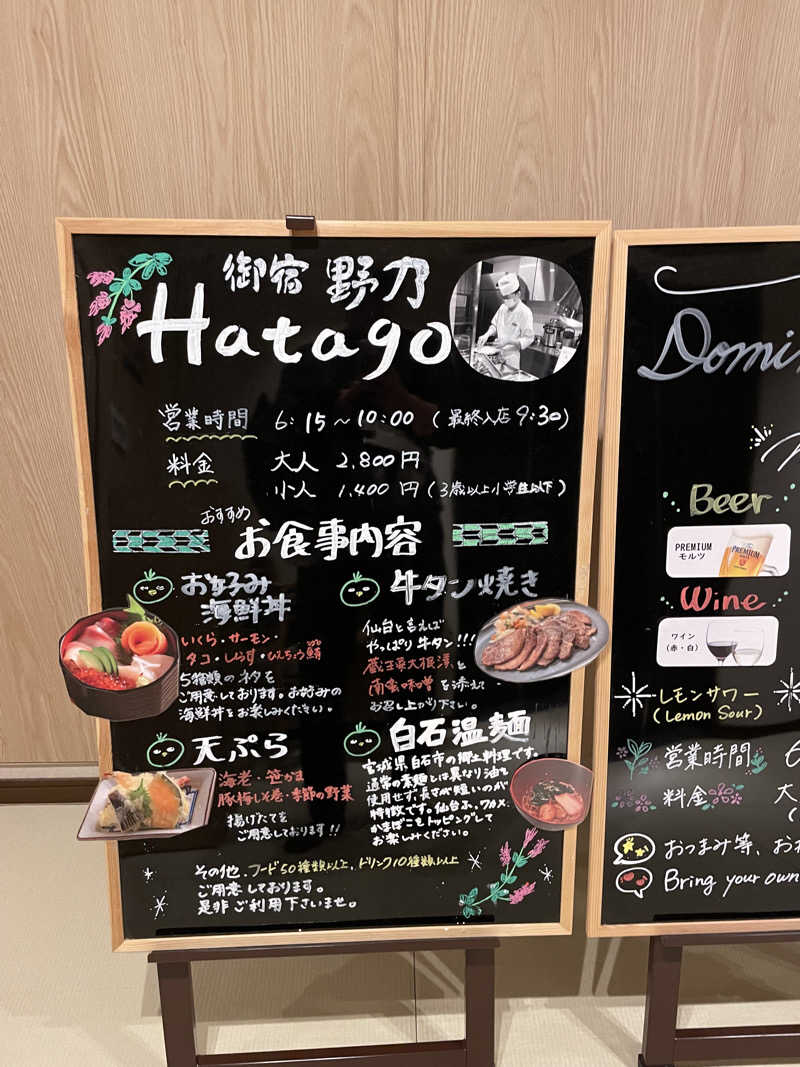 御宿 野乃
Hatago
営業時間 6:15～10:00 (最終入店 9:30)
料金 大人 2,800円
小人 1,400円 (3歳以上小学生以下)
おすすめ
お食事内容
お好み
海鮮丼
いくら・サーモン・
タコ・しらす・びんちょう鮪
5種類のネタを
ご用意しております。お好みの
海鮮丼をお楽しみください。
牛タン焼き
仙台と言えば
やっぱり牛タン!!!
蔵王菜大根漬と
南蛮味噌を添えて
お召し上がり下さい。
天ぷら
海老・笹かま
豚梅しそ巻・季節の野菜
揚げたてを
ご用意しております!!
白石温麺
宮城県白石市の郷土料理です。
通常の素麺とは異なり油を
使用せず、長さが短いのが
特徴です。仙台ふ、ワカメ、
かまぼこをトッピングして
お楽しみください。
その他、フード50種類以上、ドリンク10種類以上
ご用意しております。
是非ご利用下さいませ。
Domi
Beer
PREMIUM
モルツ
PREMIUM
Wine
ワイン
(赤・白)
レモンサワー
(Lemon Sour)
営業時間 6
料金 大
おつまみ等、お
Bring your own